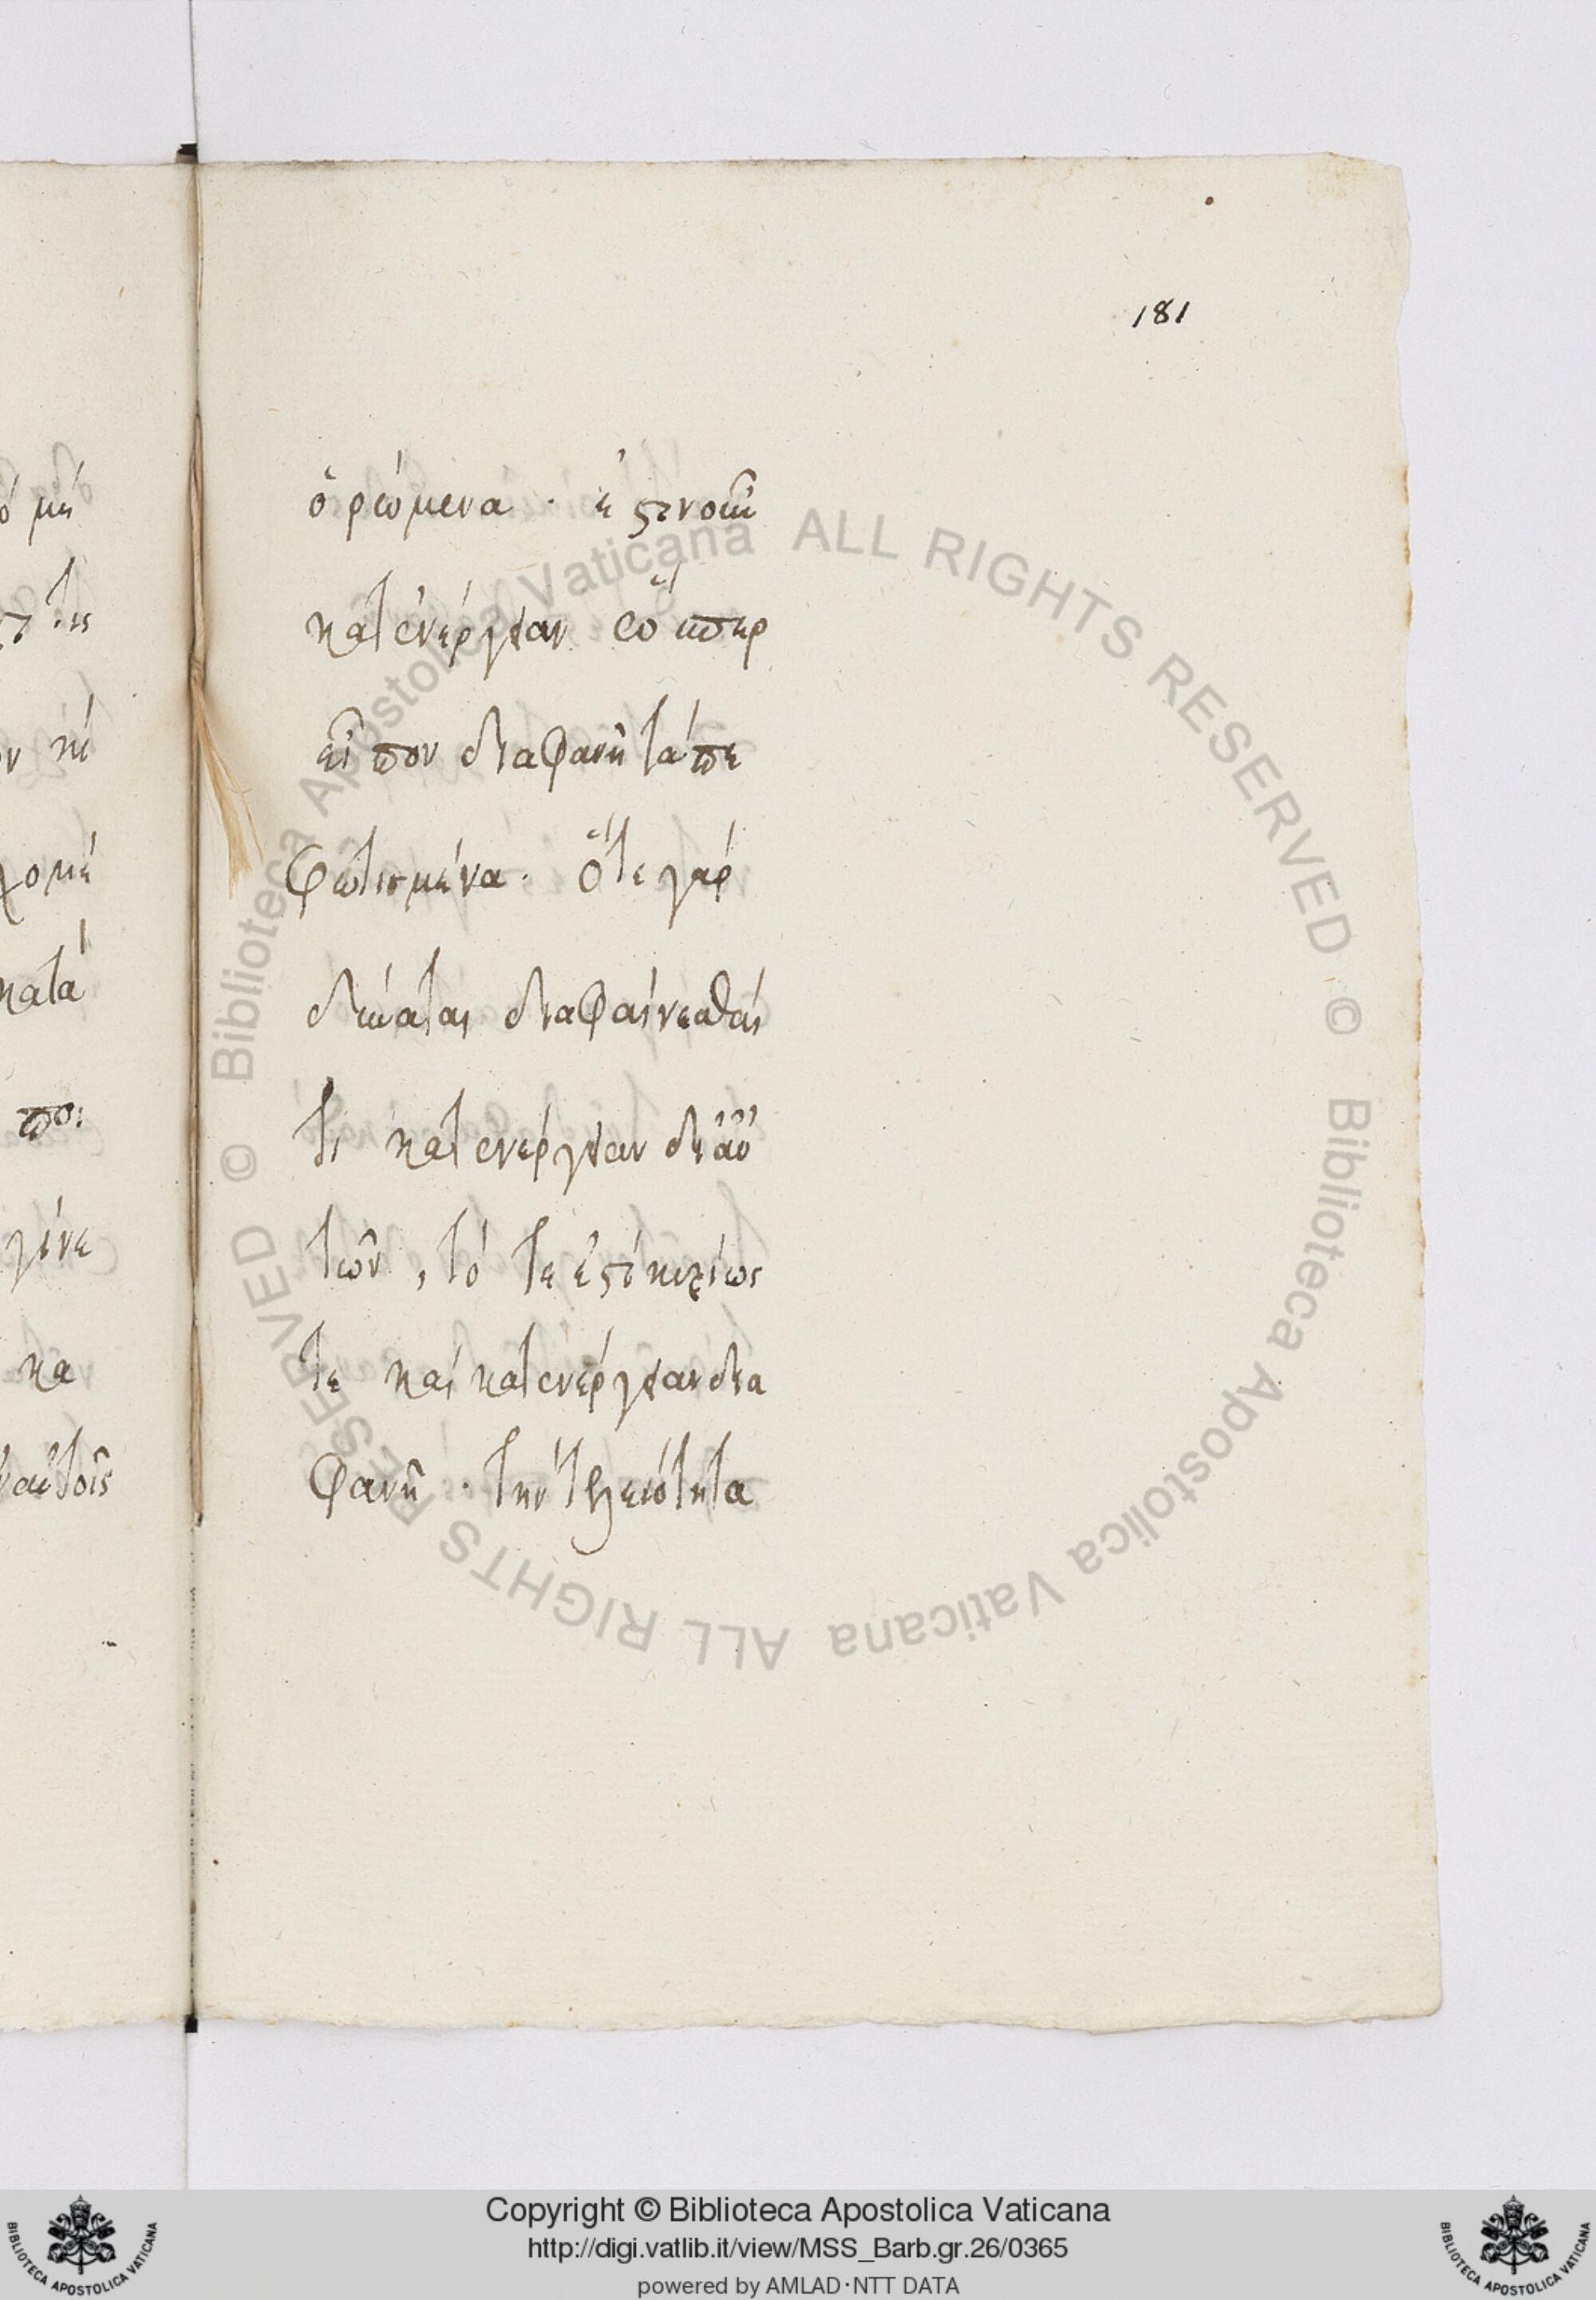 181
ὁρώμενα · ἔστιν οὖν
κατ ἐνέργειαν ὥσπερ
εἶπον διαφανῆ τὰ πε
φωτισμένα · ὅτε γάρ
δύναται διαφαίνεσθαί
τι κατ ενέργειαν δι ἀυ
τῶν , τό τε ἐστὶ κυρίως
τε καὶ κατ ενέργειαν δια
φανῆ · τὴν τελειότητα
ό μή
τις
ν κί
χομέ
κατά
ποι
γίνε
κα
αὐτοῖς
© Biblioteca Apostolica Vaticana ALL RIGHTS RESERVED © Biblioteca Apostolica Vaticana ALL RIGHTS RESERVED
Copyright © Biblioteca Apostolica Vaticana
http://digi.vatlib.it/view/MSS_Barb.gr.26/0365
powered by AMLAD·NTT DATA
BIBLIOTECA APOSTOLICA VATICANA
BIBLIOTECA APOSTOLICA VATICANA